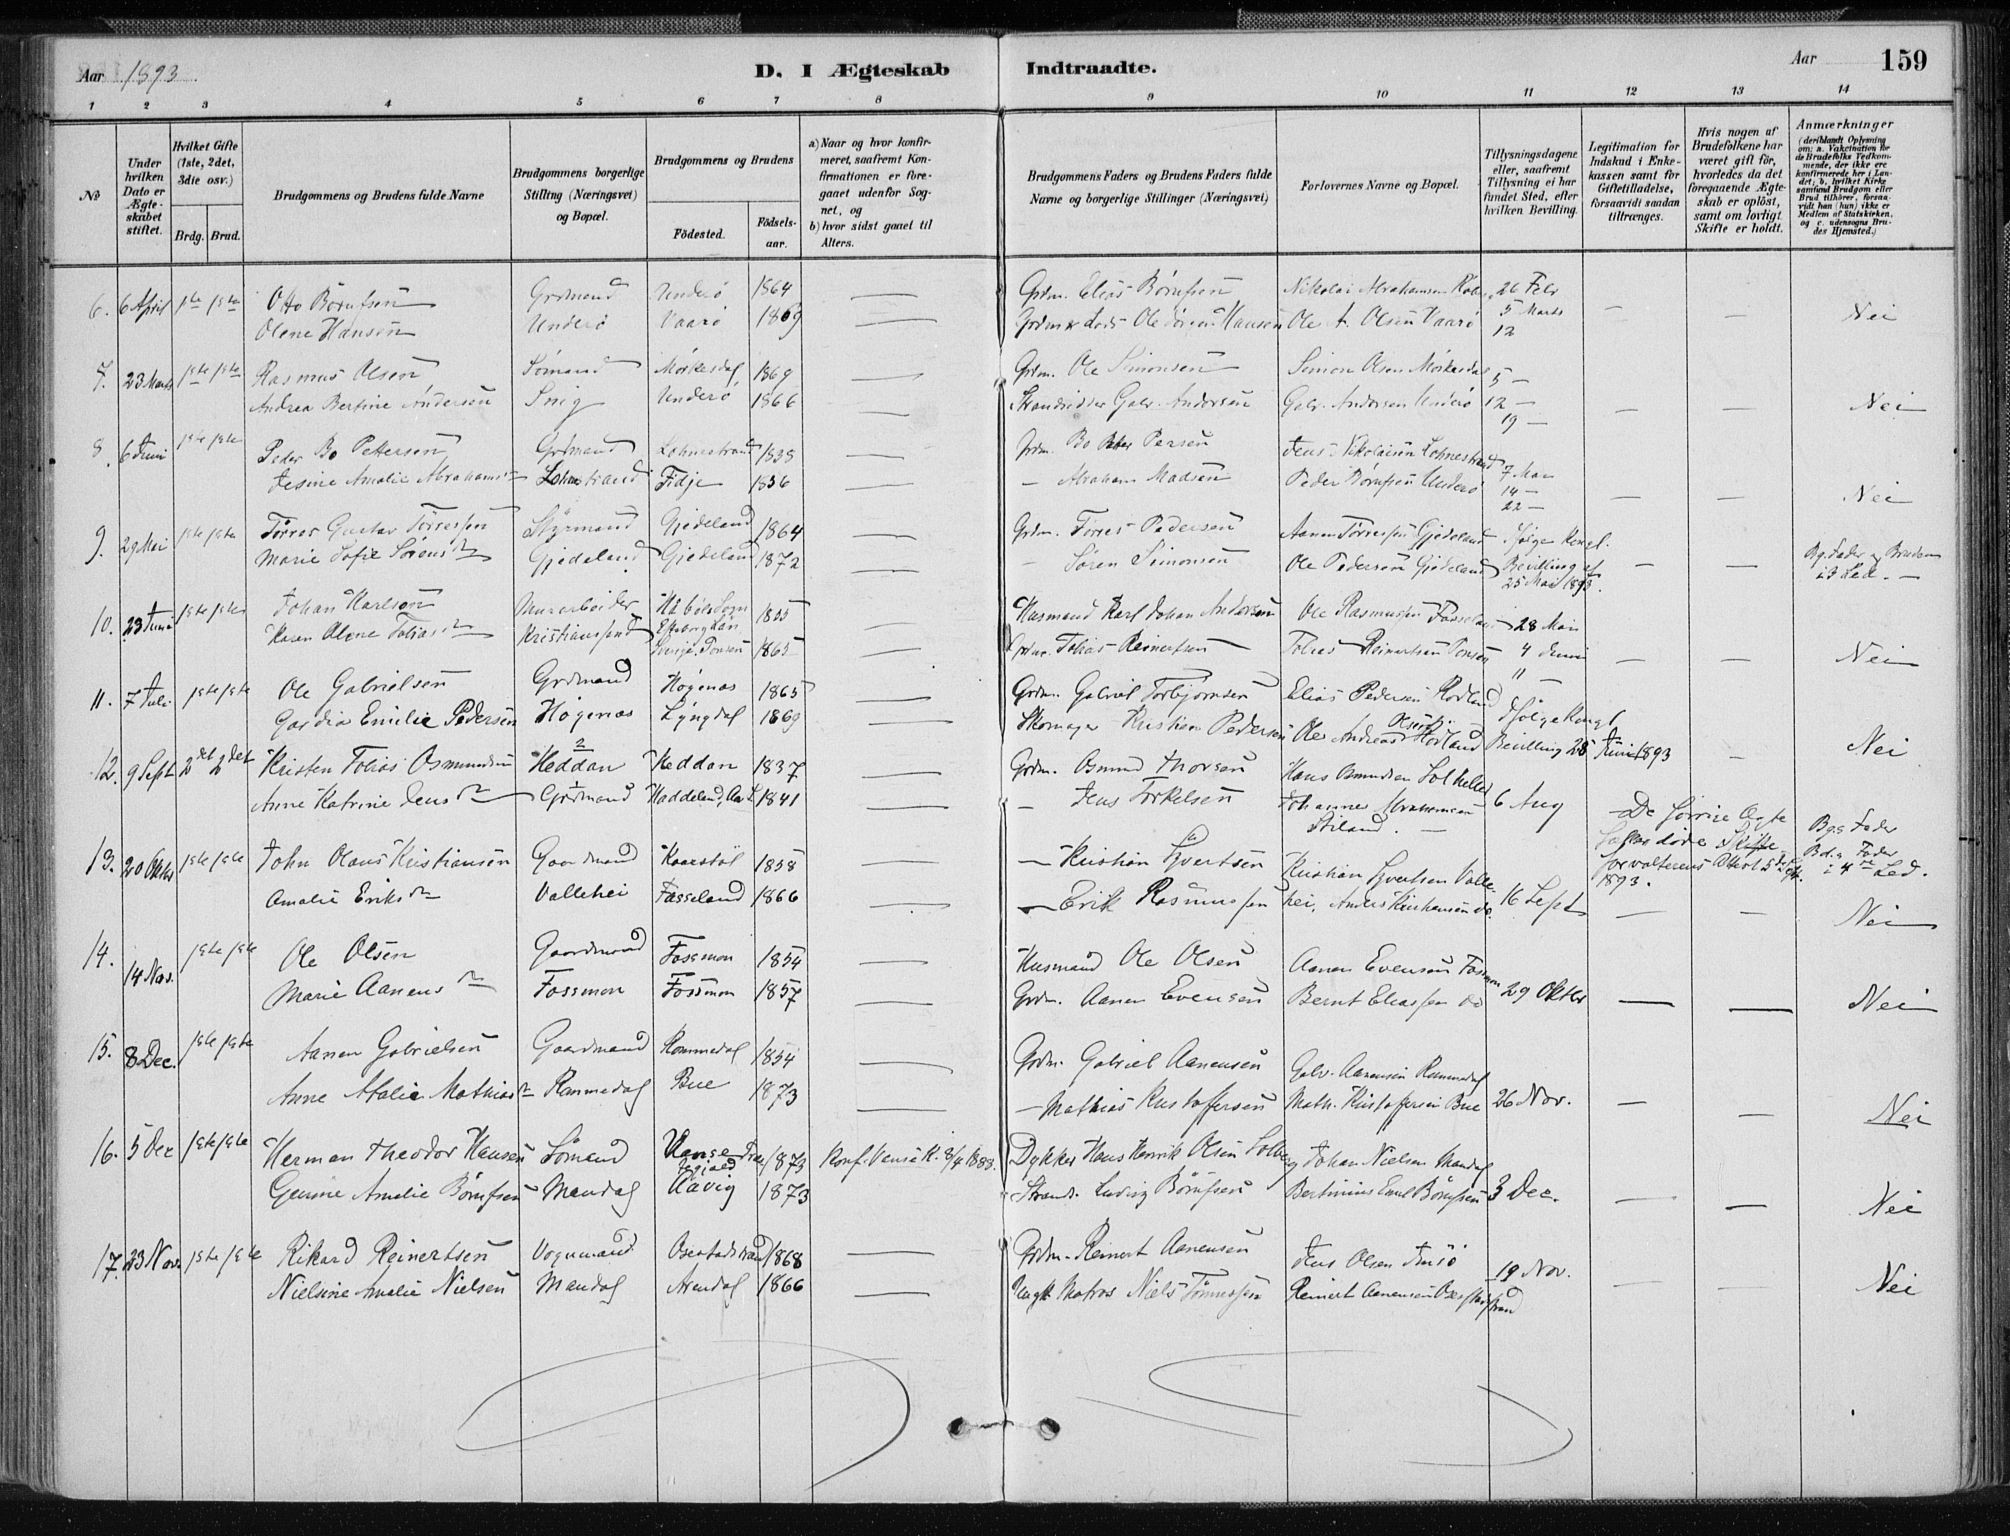 Aar 1893.
D. I Ægteskab Indtraadte.
Aar 159
1 2 3 4 5 6 7 8 9 10 11 12 13 14
No.
Under hvilken Dato er Ægteskabet stiftet.
Hvilket Gifte (1ste, 2det, 3die osv.)
Brdg. Brud.
Brudgommens og Brudens fulde Navne
Brudgommens borgerlige Stilling (Næringsvei) og Bopæl.
Brudgommens og Brudens
Födested. Födsels-aar.
a) Naar og hvor konfirmeret, saafremt Konfirmationen er foregaaet udenfor Sognet, og
b) hvor sidst gaaet til Alters.
Brudgommens Faders og Brudens Faders fulde Navne og borgerlige Stillinger (Næringsvei)
Forlovernes Navne og Bopæl.
Tillysningsdagene eller, saafremt Tillysning ei har fundet Sted, efter hvilken Bevilling.
Legitimation for Indskud i Enkekassen samt for Giftetilladelse, forsaavidt saadan tiltrænges.
Hvis nogen af Brudefolkene har været gift för, hvorledes da det foregaaende Ægteskab er oplöst, samt om lovligt Skifte er holdt.
Anmærkninger (deriblandt Oplysning om: a. Vakcination for de Brudefolks Vedkommende, der ikke ere konfirmerede her i Landet; b. hvilket Kirkesamfund Brudgom eller Brud tilhörer, forsaavidt han (hun) ikke er Medlem af Statskirken, og c. udensogns Brudes Hjemsted.)
6. 6 April 1ste 1ste Otto Börufsen Grdmand Underö 1864 Grdm. Elias Börufsen Nikolai Abrahamsen 26 Febr
Olene Hansen Underö Vaarö 1869 Hansen Ole A. Olsen Vaarö 5 Marts 12 Nei
7. 23 Marts 1ste 1ste Rasmus Olsen Sömand Möskedal 1869 Grdm. Ole Simonsen Simon Olsen Möskedal 5 —
Andrea Bertine Andersen Snig Underö 1866 Strandsidder Gabr. Andersen Gabr. Andersen Underö 12 — 19 — Nei
8. 6 Juni 1ste 1ste Peder Bo Pettersen Grdmand Lohnestrand 1838 Grdm. Bo Peter Persen Jens Nikolaisen Lohnestrand 7 Mai
Jesine Amalie Abrahamsdtr Lohnestrand Fidje 1836 — Abraham Madsen Peder Börufsen Underö 14 — 22 — Nei
9. 29 Mai 1ste 1ste Törres Gustav Törressen Styrmand Gjedeland 1864 Grdm. Törres Pedersen Aanen Törressen Gjedeland Ifölge Kongl.
Marie Sofie Sörensdtr Gjedeland Gjedeland 1872 — Sören Simonsen Ole Pedersen Gjedeland Bevilling af 25 Mai 1893. Bg. Fader og Brudens i 3 Led. —
10. 23 Juni 1ste 1ste Johan Karlson Murarbeider 1855 Husmand Karl Johan Andersen Ole Rasmussen 28 Mai
Karen Olene Tobiasdtr Kristianssand 1865 Grdm. Tobias Reinertsen Tobias Reinertsen 4 Juni 11 — Nei
11. 7 Juli 1ste 1ste Ole Gabrielsen Grdmand Högenes 1865 Grdm. Gabriel Torbjörnsen Elias Pedersen Rodland Ifölge Kongl
Gardia Emilie Pedersen Högenes Lyngdal 1869 Skomager Kristian Pedersen Ole Andreas Olsen Bevilling 28 Juni 1893 Nei
12. 9 Sept 2det 2det Kristen Tobias Osmundsen Heddan Heddan 1837 Grdm. Osmund Thorsen Hans Osmundsen
Anne Katrine Jensdtr Grdmand Haddeland, 1841 — Jens Torkelsen Johannes Abrahamsen Stiland. 6 Aug De forrige Ægtefolks döde Skifteforvalterens Attest 5 Sept. 1893. Bg.s Fader Bd.s Fader i 4de Led.
13. 20 Oktbr 1ste 1ste John Olaus Kristiansen Gaardmand Kaarstöl 1858 — Kristian Syvertsen Kristian Syvertsen Vallehei,
Amalie Eriksdtr Vallehei Fasseland 1866 — Erik Rasmussen Anders Kristiansen do. 16 Sept Nei
14. 14 Nov. 1ste 1ste Ole Olsen Gaardmand Fossmon 1854 Husmand Ole Olsen Aanen Evensen Fossmon
Marie Aanensdtr Fossmon Fossmon 1857 Grdm. Aanen Evensen Bernt Eliassen do 29 Oktbr Nei
15. 8 Dec. 1ste 1ste Aanen Gabrielsen Gaardmand Rommedal 1854 Grdm. Gabriel Aanensen Gabr. Aanensen Rommedal
Anne Atalie Mathiasdtr Rommedal Bue 1873 — Mathias Kristoffersen Math. Kristoffersen Bue 26 Nov. Nei
16. 5 Dec 1ste 1ste Herman Theodor Hansen Sömand Vanse 1873 Konf. Vanse K. 8/4 1888. Dykker Hans Henrik Olsen Solberg Johan Nielsen Mandal
Gjenine Amalie Börufsen Mandal Uavig 1873 Strands. Ludvig Börufsen Bertinius Emil Börufsen 3 Dec. Nei
17. 23 Nov. 1ste 1ste Rikard Reinertsen Vognmand Osestadstrand 1868 Grdm. Reinert Aanensen Jens Olsen
Nielsine Amalie Nielsen Mandal Arendal 1866 Matros Niels Tönnessen Reinert Aanensen Osestadstrand 19 Nov. Nei